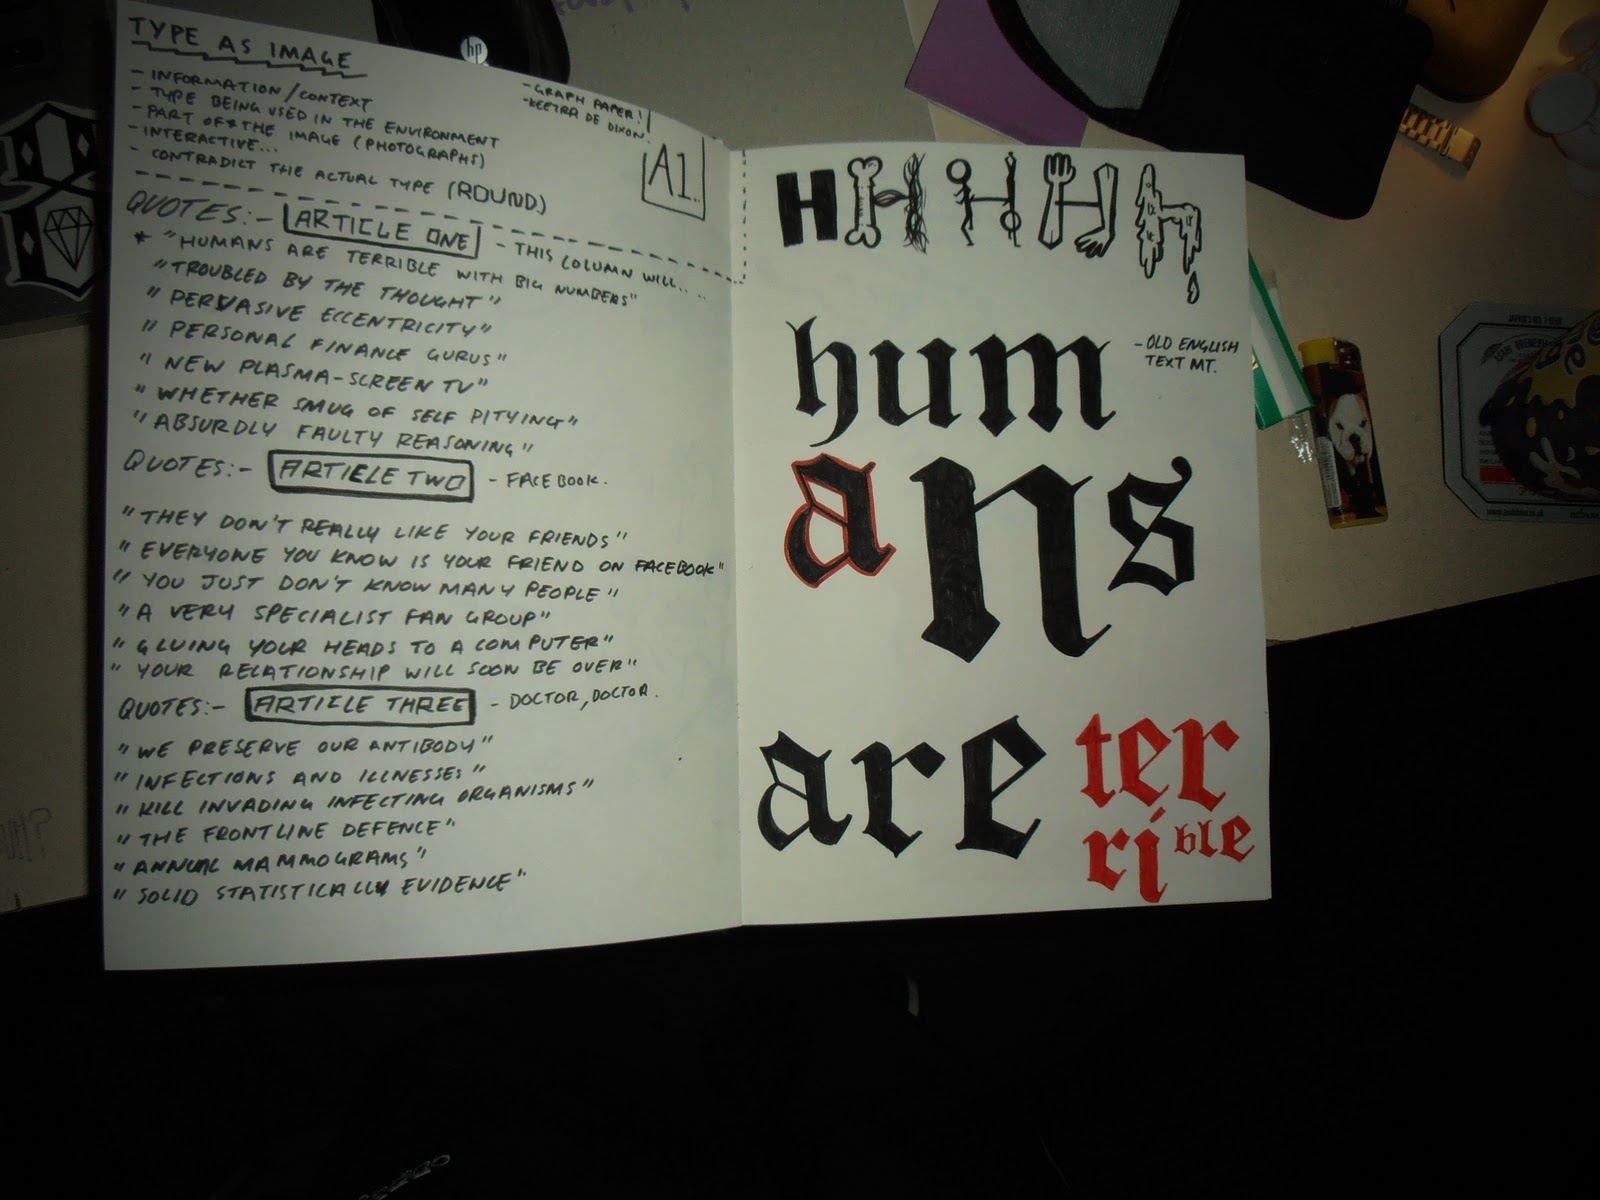 TYPE AS IMAGE
- INFORMATION/CONTEXT
- TYPE BEING USED IN THE ENVIRONMENT
- PART OF THE IMAGE (PHOTOGRAPHS)
- INTERACTIVE...
- CONTRADICT THE ACTUAL TYPE (ROUND)
- GRAPH PAPER!
- KEETRA DE DIXON.
A1..
QUOTES:- ARTICLE ONE - THIS COLUMN WILL....
* "HUMANS ARE TERRIBLE WITH BIG NUMBERS"
"TROUBLED BY THE THOUGHT"
"PERVASIVE ECCENTRICITY"
"PERSONAL FINANCE GURUS"
"NEW PLASMA-SCREEN TV"
"WHETHER SMUG OF SELF PITYING"
"ABSURDLY FAULTY REASONING"
QUOTES:- ARTICLE TWO - FACEBOOK.
"THEY DON'T REALLY LIKE YOUR FRIENDS"
"EVERYONE YOU KNOW IS YOUR FRIEND ON FACEBOOK"
"YOU JUST DON'T KNOW MANY PEOPLE"
"A VERY SPECIALIST FAN GROUP"
"GLUING YOUR HEADS TO A COMPUTER"
"YOUR RELATIONSHIP WILL SOON BE OVER"
QUOTES:- ARTICLE THREE - DOCTOR, DOCTOR.
"WE PRESERVE OUR ANTIBODY"
"INFECTIONS AND ILLNESSES"
"KILL INVADING INFECTING ORGANISMS"
"THE FRONTLINE DEFENCE"
"ANNUAL MAMMOGRAMS"
"SOLID STATISTICALLY EVIDENCE"
H H H H H h
hum
- OLD ENGLISH
TEXT MT.
ans
are ter
ri ble
hp